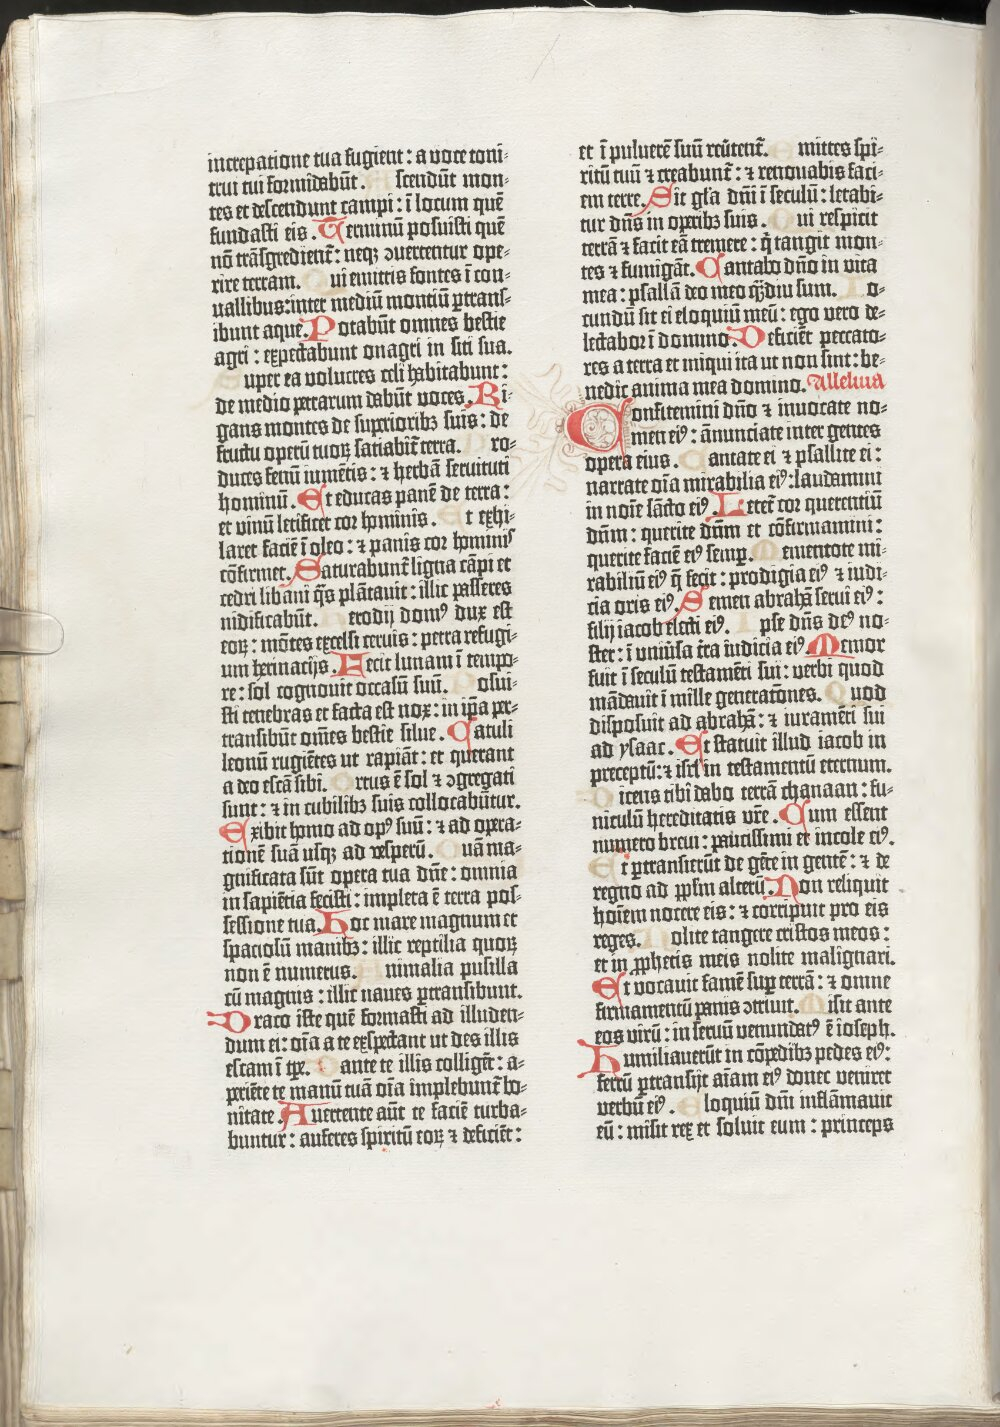 increpatione tua fugient : a voce toni-
trui tui formidabũt . A scendũt mon-
tes et descendunt campi : ĩ locum quẽ
fundasti eis . Terminũ posuisti quẽ
nõ trãsgredient᷑ : neqꝫ ↄuertentur ope-
rire terram . Q ui emittis fontes ĩ con-
uallibus : inter mediũ montiũ ꝑtrans-
ibunt aque . Potabũt omnes bestie
agri : expectabunt onagri in siti sua .
S uper ea volucres celi habitabunt :
de medio petrarum dabũt voces . Ri-
gans montes de suꝑioribꝫ suis : de
fructu operũ tuoꝝ satiabit᷑ terra . P ro-
ducẽs fenũ iumẽtis : ⁊ herbã seruituti
hominũ . Et educas panẽ de terra :
et vinũ letificet cor hominis . E t exhi-
laret faciẽ ĩ oleo : ⁊ panis cor hominis
cõfirmet . Saturabunt᷑ ligna cãpi et
cedri libani q̃s plãtauit : illic passeres
nidificabũt . H erodij domꝰ dux est
eoꝝ : mõtes excelsi ceruis : petra refugi-
um herinacijs . Fecit lunam ĩ tempo-
re : sol cognouit occasũ suũ . P osui-
sti tenebras et facta est nox : in iꝑ̃a per-
transibũt oм̃es bestie silue . Catuli
leonũ rugiẽtes ut rapiãt : et querant
a deo escã sibi . O rtus ẽ sol ⁊ ↄgregati
sunt : ⁊ in cubilibꝫ suis collocabũtur .
Exibit homo ad opꝰ suũ : ⁊ ad opera-
tionẽ suã usqꝫ ad vesperũ . Q uã ma-
gnificata sũt opera tua dñe : omnia
in sapiẽtia fecisti : impleta ẽ terra pos-
sessione tua . Hoc mare magnum et
spaciosũ manibꝫ : illic reptilia quoꝝ
non ẽ numerus . A nimalia pusilla
cũ magnis : illic naues ꝑtransibunt .
Draco iste quẽ formasti ad illuden-
dum ei : oĩa a te exspectant ut des illis
escam ĩ tꝑe . D ante te illis colligẽt : a-
periẽte te manũ tuã oĩa implebunt᷑ bo-
nitate . Auertente aũt te faciẽ turba-
buntur : auferes spiritũ eoꝝ ⁊ deficiẽt :
et ĩ puluerẽ suũ reũtent᷑ . E mittes spĩ-
ritũ tuũ ⁊ creabunt᷑ : ⁊ renouabis faci-
em terre . Sit gl̃a dñi ĩ seculũ : letabi-
tur dñs in operibꝫ suis . Q ui respicit
terrã ⁊ facit eã tremere : q̃ tangit mon-
tes ⁊ fumigãt . Cantabo dño in vita
mea : psallã deo meo q̃ꝫdiu sum . I o-
cundũ sit ei eloquiũ meũ : ego vero de-
lectabor ĩ domino . Deficiẽt peccato-
res a terra et iniqui ita ut non sint : be-
nedic anima mea domino . Alleluia
Confitemini dño ⁊ inuocate no-
men eiꝰ : ãnunciate inter gentes
opera eius . C antate ei ⁊ psallite ei :
narrate oĩa mirabilia eiꝰ : laudamini
in noĩe sãcto eiꝰ . Letet᷑ cor querentiũ
dñm : querite dñm et cõfirmamini :
querite faciẽ eiꝰ semꝑ . M ementote mi-
rabiliũ eiꝰ q̃ fecit : prodigia eiꝰ ⁊ iudi-
cia oris eiꝰ . Semen abrahã serui eiꝰ :
filij iacob electi eiꝰ . I pse dñs deꝰ no-
ster : ĩ uniũsa t̃ra iudicia eiꝰ . Memor
fuit ĩ seculũ testamẽti sui : verbi quod
mãdauit ĩ mille generatões . Q uod
disposuit ad abrahã : ⁊ iuramẽti sui
ad ysaac . Et statuit illud iacob in
preceptũ : ⁊ isrl̃ in testamentũ eternum .
D icens tibi dabo terrã chanaan : fu-
niculũ hereditatis vr̃e . Cum essent
numero breui : paucissimi et incole eiꝰ .
E t ꝑtransierũt de gẽte in gentẽ : ⁊ de
regno ad pp̃lm alterũ . Non reliquit
hoĩem nocere eis : ⁊ corripuit pro eis
reges . N olite tangere cristos meos :
et in ꝓphetis meis nolite malignari .
Et vocauit famẽ suꝑ terrã : ⁊ omne
firmamentũ panis ↄtriuit . M isit ante
eos virũ : in seruũ venundatꝰ ẽ ioseph .
Humiliauerũt in cõpedibꝫ pedes eiꝰ :
ferrũ ꝑtransijt aĩam eiꝰ donec veniret
verbũ eiꝰ . E loquiũ dñi inflãmauit
eũ : misit rex et soluit eum : princeps